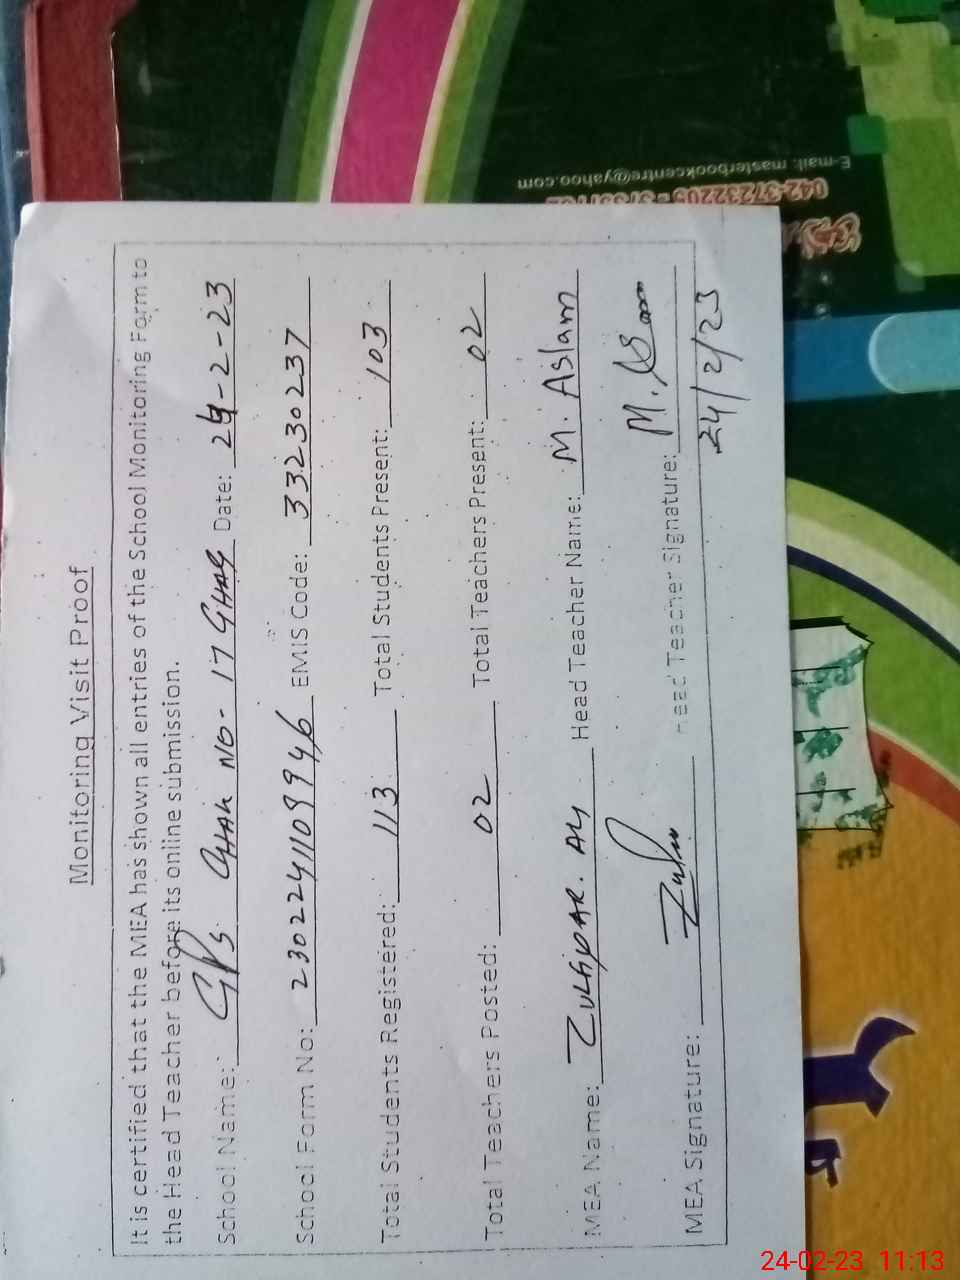 Monitoring Visit Proof
It is certified that the MEA has shown all entries of the School Monitoring Form to
the Head Teacher before its online submission.
School Name: GPS. CHAK NO- 17 GHAG Date: 24-2-23
School Form No: 23022411099946 EMIS Code: 33230237
Total Students Registered: 113 Total Students Present: 103
Total Teachers Posted: 02 Total Teachers Present: 02
MEA Name: ZULFIQAR. ALI Head Teacher Name: M. Aslam
MEA Signature: Head Teacher Signature: M. Aslam
24/2/23
E-mail: masterbookcentre@yahoo.com
24-02-23 11:13